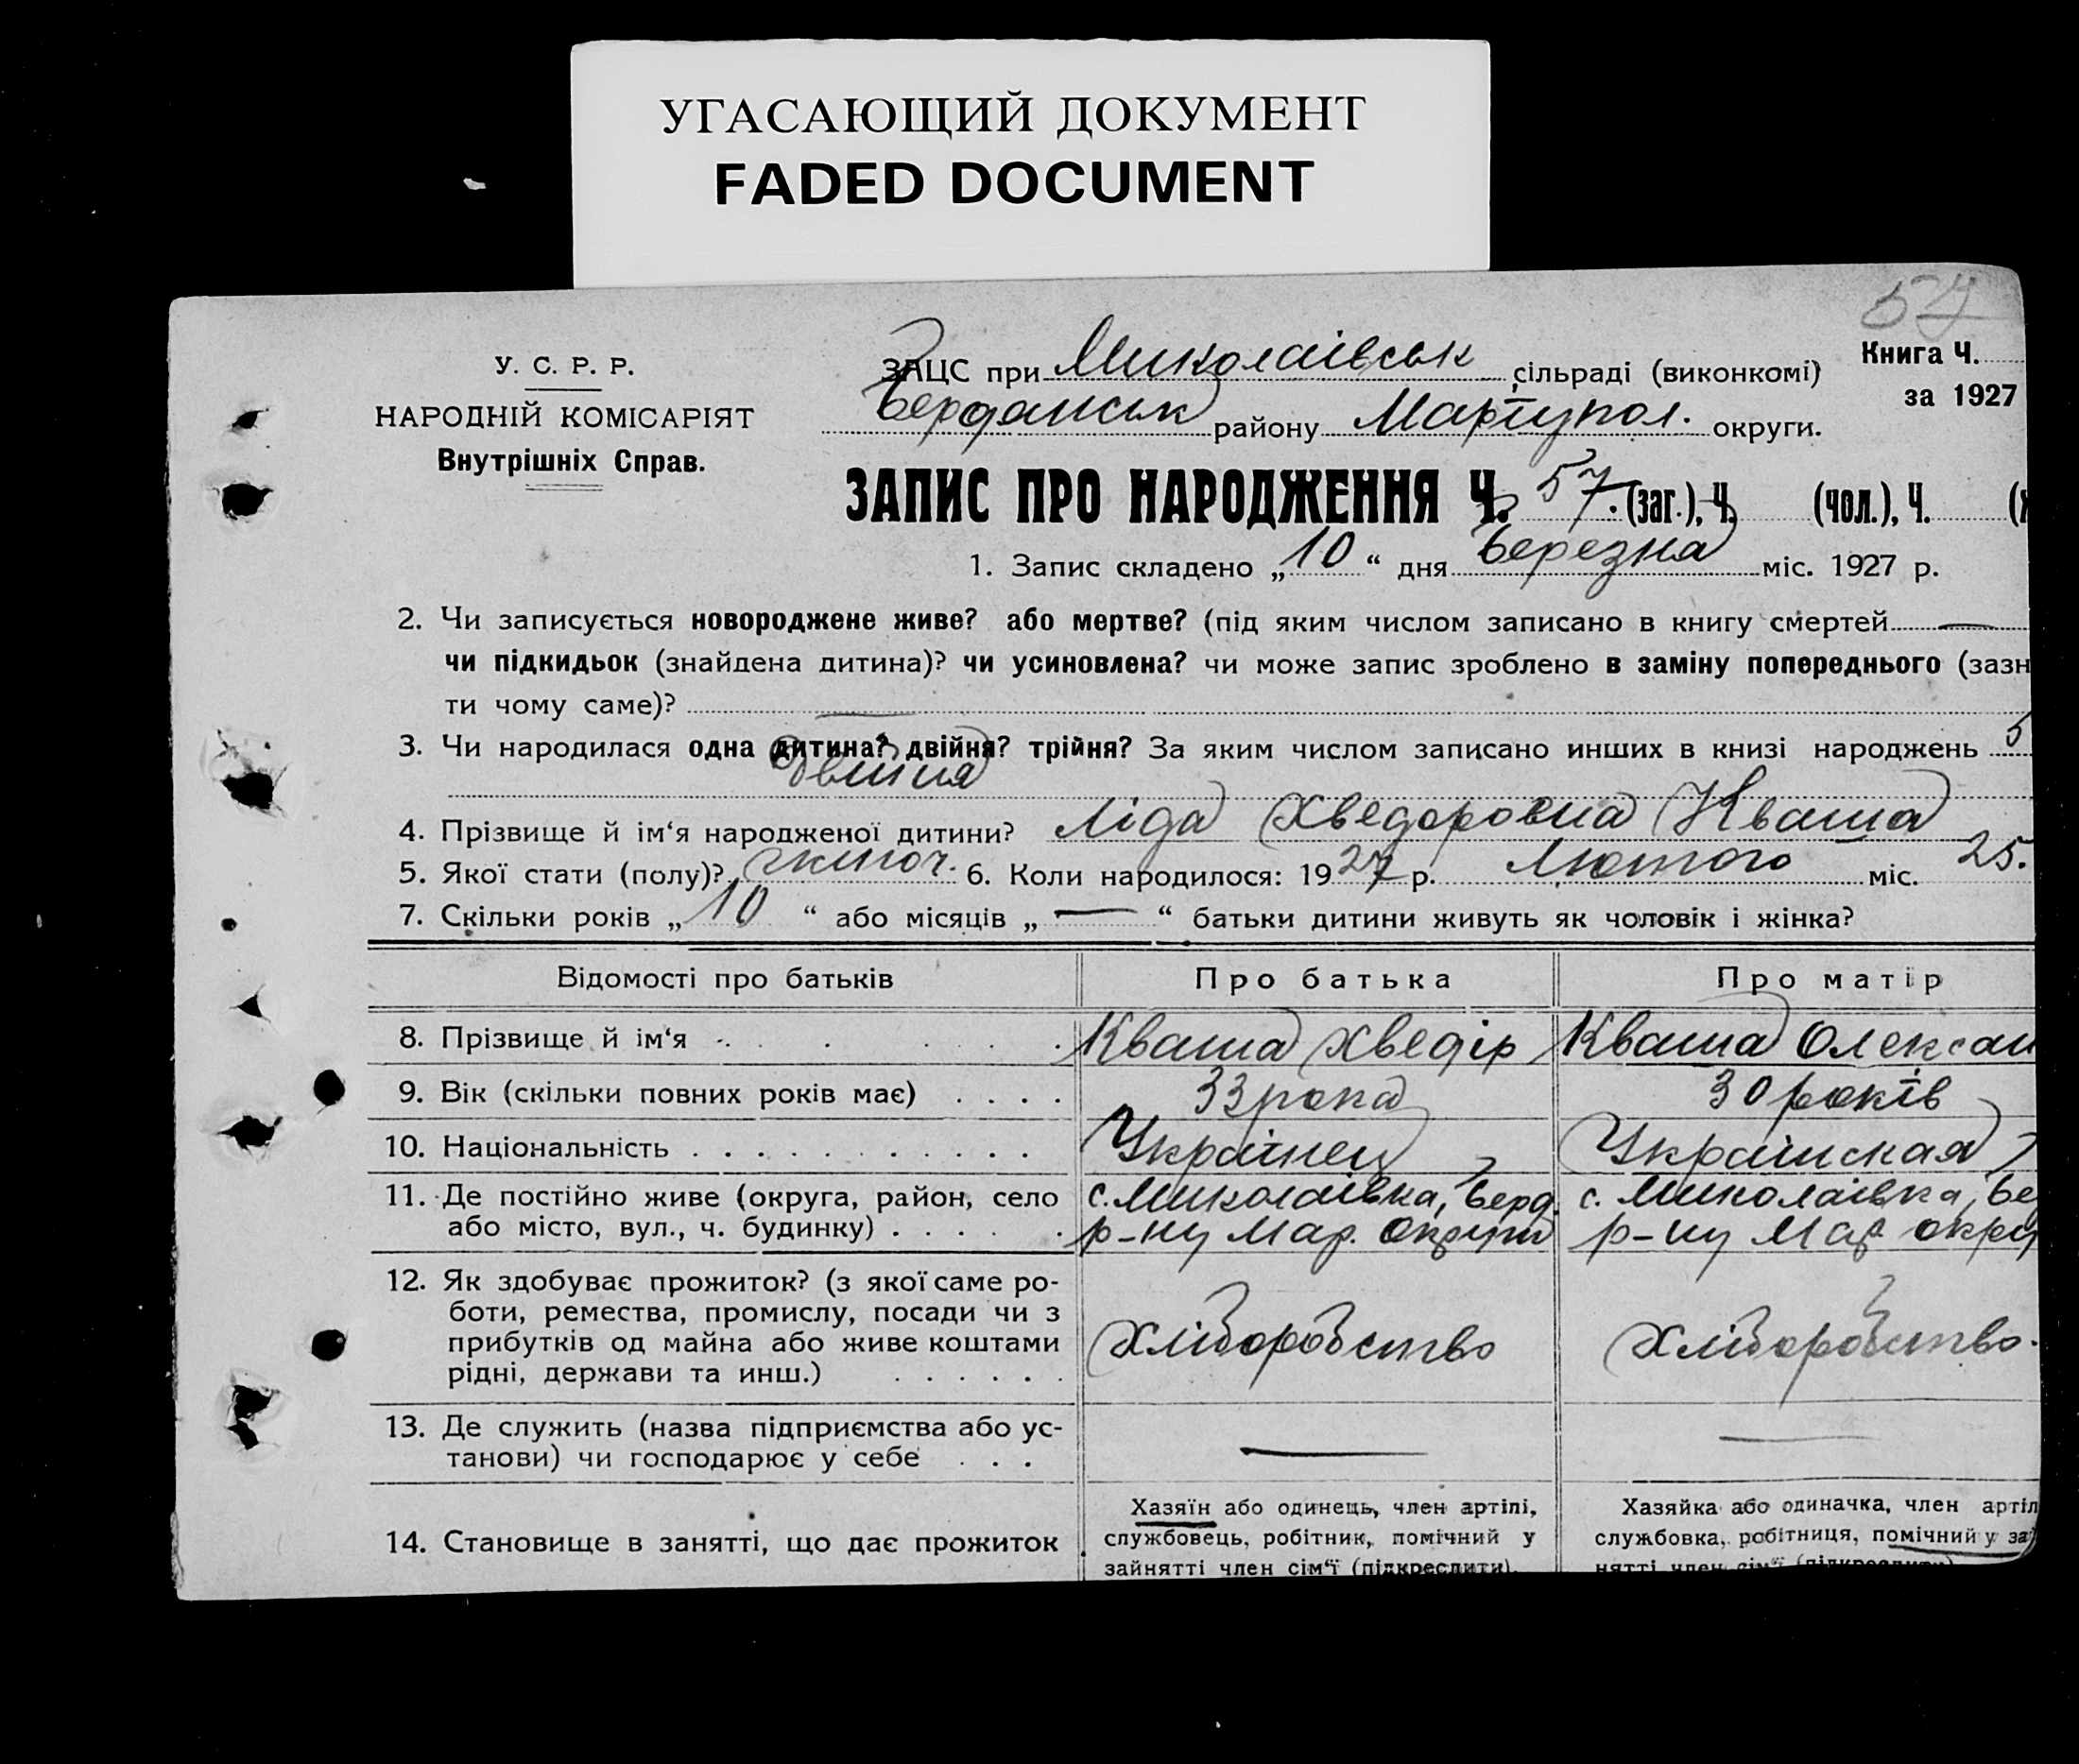 УГАСАЮЩИЙ ДОКУМЕНТ
FADED DOCUMENT
57
У. С. Р. Р.
НАРОДНІЙ КОМІСАРІЯТ
Внутрішніх Справ.
ЗАЦС при Миколаівськ сільраді (виконкомі)
Бердянськ району Маріупол. округи.
Книга Ч.
за 1927
ЗАПИС ПРО НАРОДЖЕННЯ Ч. 57. (заг.), Ч. (чол.), Ч. (
1. Запис складено „ 10 “ дня Березня міс. 1927 р.
2. Чи записується новороджене живе? або мертве? (під яким числом записано в книгу смертей —
чи підкидьок (знайдена дитина)? чи усиновлена? чи може запис зроблено в заміну попереднього (зазн
ти чому саме)? —
3. Чи народилася одна дитина? двійня? трійня? За яким числом записано инших в книзі народжень 5
Двійня
4. Прізвище й ім‘я народженої дитини? Ліда Хведоровна Кваша
5. Якої стати (полу)? жіноч. 6. Коли народилося: 1927 р. Лютого міс. 25.
7. Скільки років „ 10 “ або місяців „ — “ батьки дитини живуть як чоловік і жінка?
Відомості про батьків Про батька Про матір
8. Прізвище й ім‘я . . . . . Кваша Хведір Кваша Олексан
9. Вік (скільки повних років має) . . . . 33 рока 30 років
10. Національність . . . . . . . . . . . Українец Украінская
11. Де постійно живе (округа, район, село с. Миколаівка, Берд. с. Миколаівка, Бе
або місто, вул., ч. будинку) . . . . . р-ну Мар. округи р-ну Мар. окру
12. Як здобуває прожиток? (з якої саме ро-
боти, ремества, промислу, посади чи з
прибутків од майна або живе коштами Хліборобство Хліборобство.
рідні, держави та инш.) . . . . . .
13. Де служить (назва підприємства або ус-
танови) чи господарює у себе . . . — —
Хазяїн або одинець, член артілі, Хазяйка або одиначка, член артіл
14. Становище в занятті, що дає прожиток . службовець, робітник, помічний у службовка, робітниця, помічний у за
зайнятті член сім‘ї (підкреслити). нятті член сім‘ї (підкреслити)